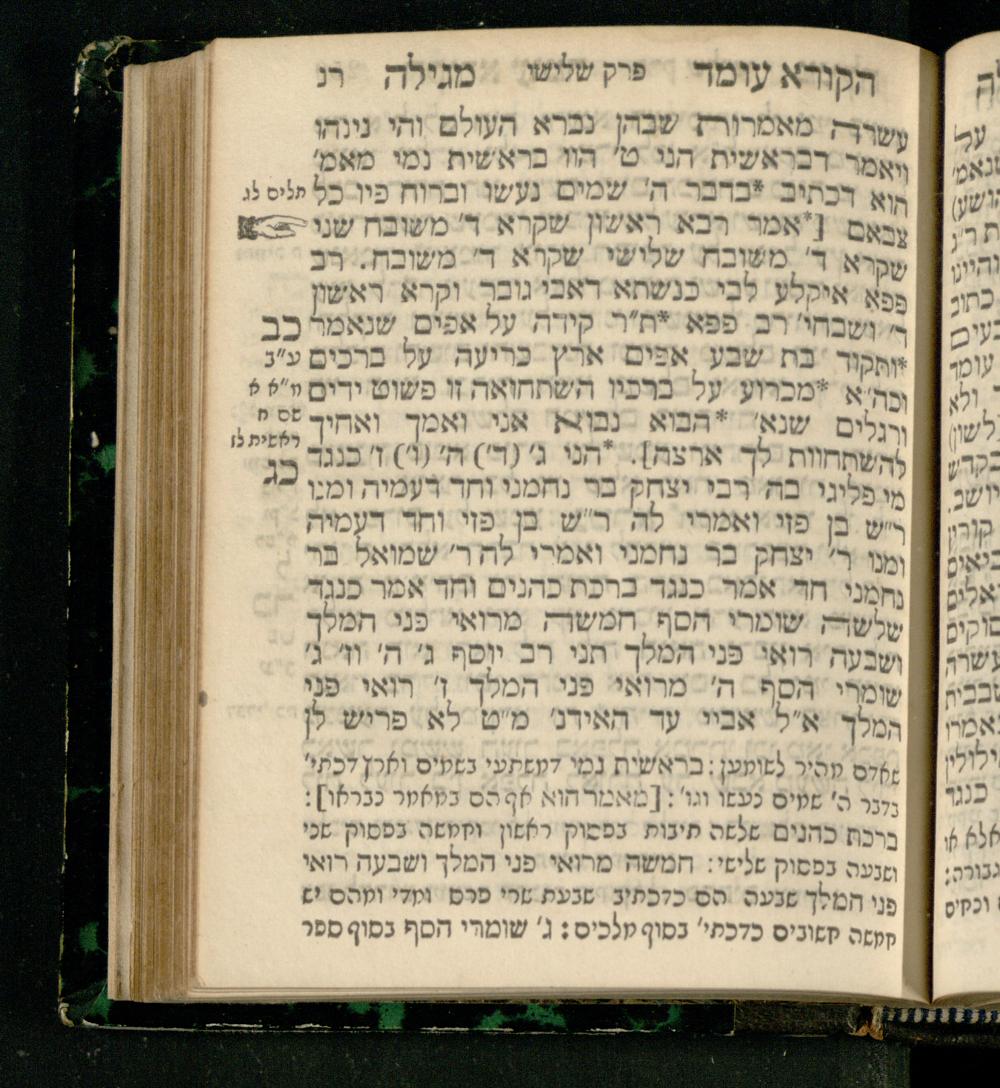 הקורא עומד פרק שלישי מגילה רנ
עשרה מאמרות שבהן נברא העולם והי נינהו
ויאמר דבראשית הני ט׳ הוו בראשית נמי מאמ׳
הוא דכתיב *בדבר ה׳ שמים נעשו וברוח פיו כל
צבאם [*אמר רבא ראשון שקרא ד׳ משובח שני
שקרא ד׳ משובח שלישי שקרא ד׳ משובח. רב
פפא איקלע לבי כנשתא דאבי גובר וקרא ראשון
ד׳ ושבחי׳ רב פפא *ת״ר קידה על אפים שנאמר
*ותקוד בת שבע אפים ארץ כריעה על ברכים
וכה״א *מכרוע על ברכיו השתחואה זו פשוט ידים
ורגלים שנא׳ *הבוא נבוא אני ואמך ואחיך
להשתחוות לך ארצה]. *הני ג׳ (ד׳) ה׳ (ו׳) ז׳ כנגד
מי פליגי בה רבי יצחק בר נחמני וחד דעמיה ומנו
ר״ש בן פזי ואמרי לה ר״ש בן פזי וחד דעמיה
ומנו ר׳ יצחק בר נחמני ואמרי לה ר׳ שמואל בר
נחמני חד אמר כנגד ברכת כהנים וחד אמר כנגד
שלשה שומרי הסף חמשה מרואי פני המלך
ושבעה רואי פני המלך תני רב יוסף ג׳ ה׳ וז׳ ג׳
שומרי הסף ה׳ מרואי פני המלך ז׳ רואי פני
המלך א״ל אביי עד האידנ׳ מ״ט לא פריש לן
תלים לג
כב
ע״ב
מ״א א
שם ח
ראשית לז
כג
שאדם מהיר לשומען: בראשית נמי דמשתעי בשמים וארץ דכתי׳
בדבר ה׳ שמים נעשו וגו׳: [מאמר הוא אף הם במאמר נבראו]:
ברכת כהנים שלשה תיבות בפסוק ראשון וחמשה בפסוק שני
ושבעה בפסוק שלישי: חמשה מרואי פני המלך ושבעה רואי
פני המלך שבעה הם כדכתיב שבעת שרי פרס ומדי ומהם יש
חמשה חשובים כדכתי׳ בסוף מלכים: ג׳ שומרי הסף בסוף ספר